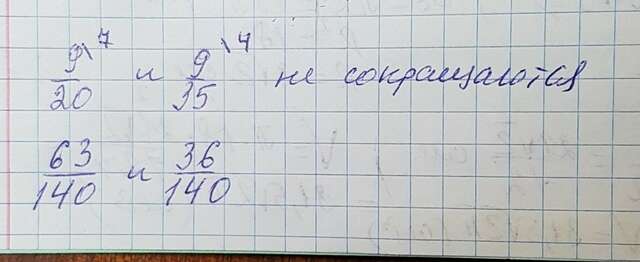 9\7/20 и 9\4/35 не сокращаются
63/140 и 36/140